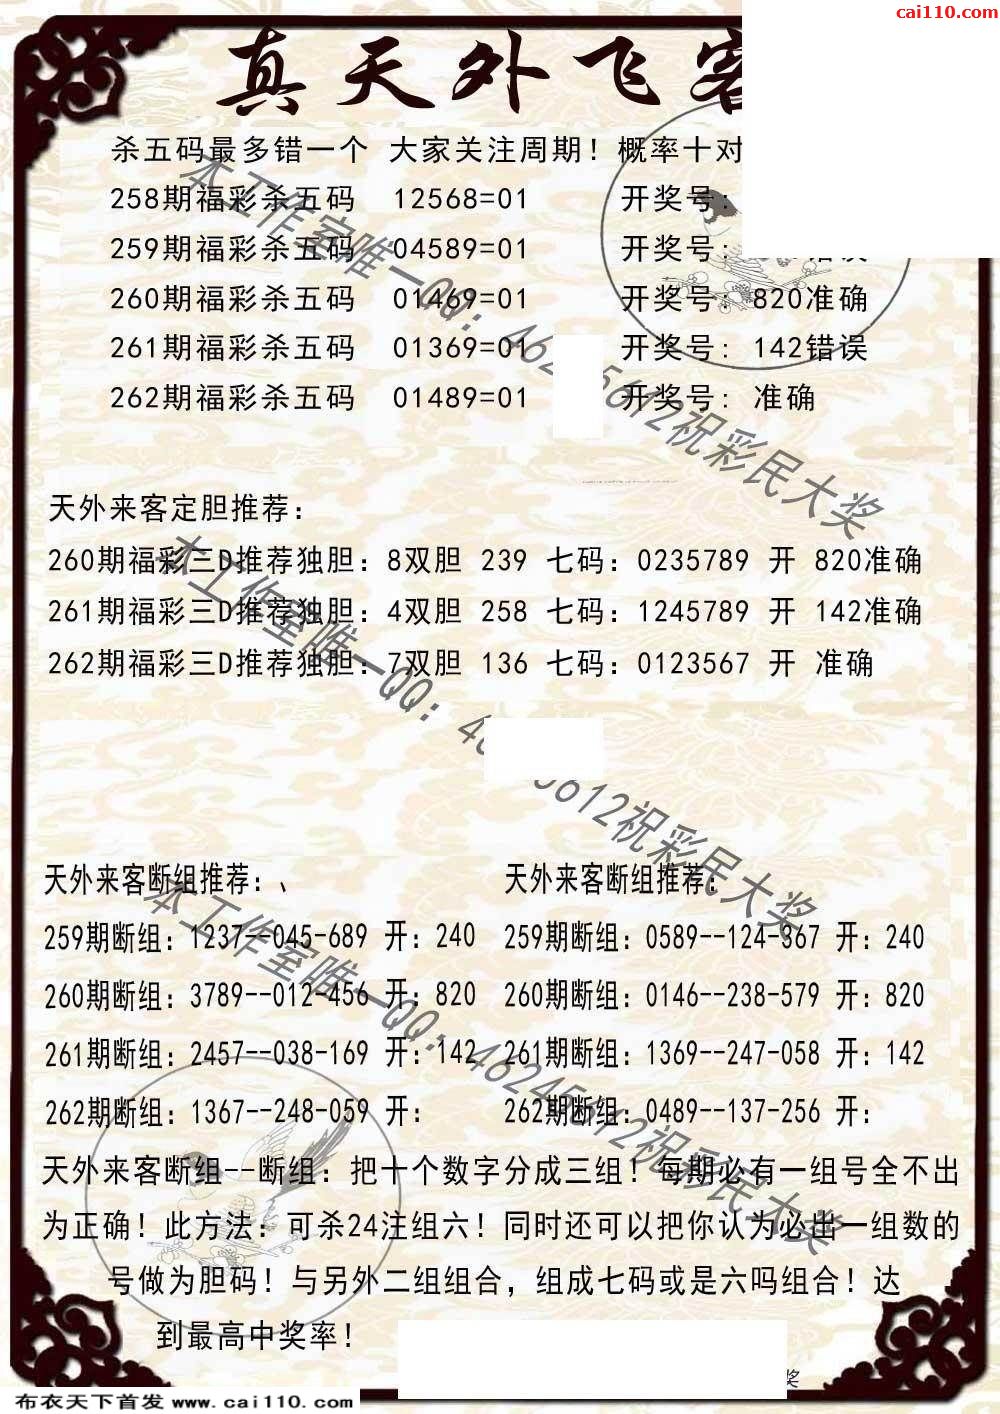 cai110.com
真天外飞客
杀五码最多错一个 大家关注周期！概率十对
258期福彩杀五码 12568=01 开奖号:
259期福彩杀五码 04589=01 开奖号: 错误
260期福彩杀五码 01469=01 开奖号: 820准确
261期福彩杀五码 01369=01 开奖号: 142错误
262期福彩杀五码 01489=01 开奖号: 准确
本工作室唯一QQ: 462 5612祝彩民大奖
天外来客定胆推荐:
260期福彩三D推荐独胆: 8双胆 239 七码: 0235789 开 820准确
261期福彩三D推荐独胆: 4双胆 258 七码: 1245789 开 142准确
262期福彩三D推荐独胆: 7双胆 136 七码: 0123567 开 准确
本工作室唯一QQ: 4 5612祝彩民大奖
天外来客断组推荐:、 天外来客断组推荐:
259期断组: 1237--045-689 开: 240 259期断组: 0589--124-367 开: 240
260期断组: 3789--012-456 开: 820 260期断组: 0146--238-579 开: 820
261期断组: 2457--038-169 开: 142 261期断组: 1369--247-058 开: 142
262期断组: 1367--248-059 开: 262期断组: 0489--137-256 开:
本工作室唯一QQ: 46245612祝彩民大奖
天外来客断组--断组: 把十个数字分成三组！每期必有一组号全不出
为正确！此方法: 可杀24注组六！同时还可以把你认为必出一组数的
号做为胆码！与另外二组组合, 组成七码或是六吗组合！达
到最高中奖率！
奖
布衣天下首发 www.cai110.com